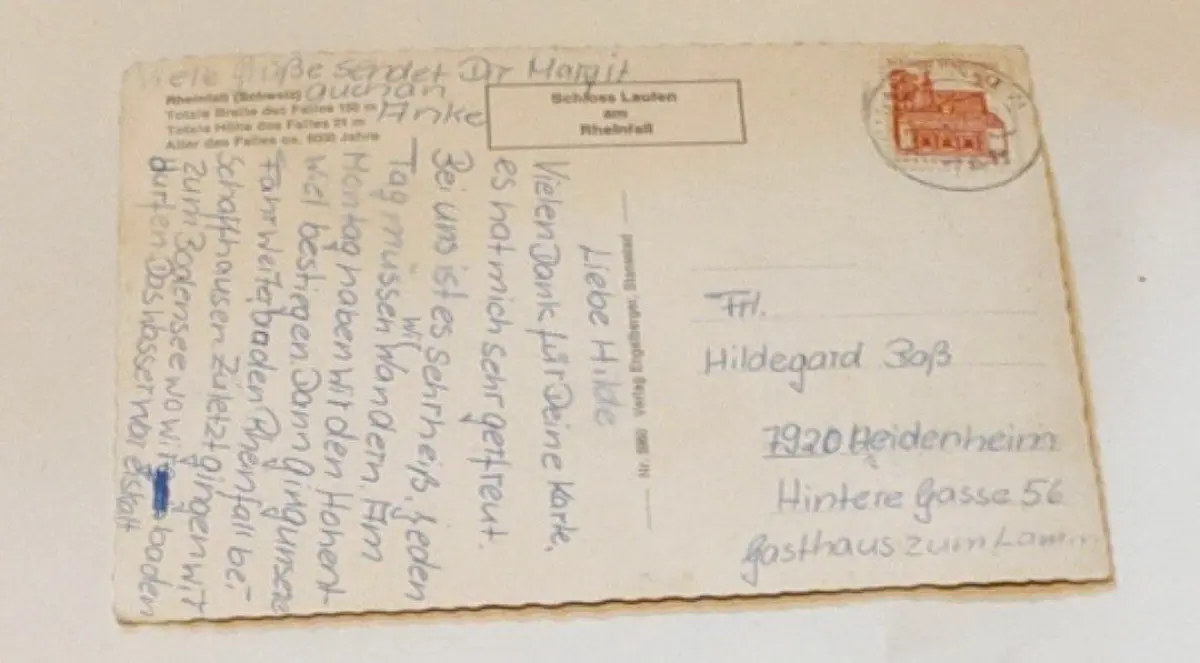 Viele Grüße sendet Dir Margit
auch an
Anke
Rheinfall (Schweiz)
Totale Breite des Falles 150 m
Totale Höhe des Falles 21 m
Alter des Falles ca. 6000 Jahre
Schloss Laufen
am
Rheinfall
Liebe Hilde
Vielen Dank für Deine Karte,
es hat mich sehr gefreut.
Bei uns ist es sehr heiß. Jeden
Tag müssen wir Wandern. Am
Montag haben wir den Hohent-
wiel bestiegen. Dann ging unsere
Fahrt weiter baden Rheinfall bei
Schaffhausen. Zuletzt gingen wir
zum Bodensee wo wir baden
durften Das Wasser war eiskalt
Nr. Verlag Engelberger, Stansstad
Frl.
Hildegard Baß
7920 Heidenheim
Hintere Gasse 56
Gasthaus zum